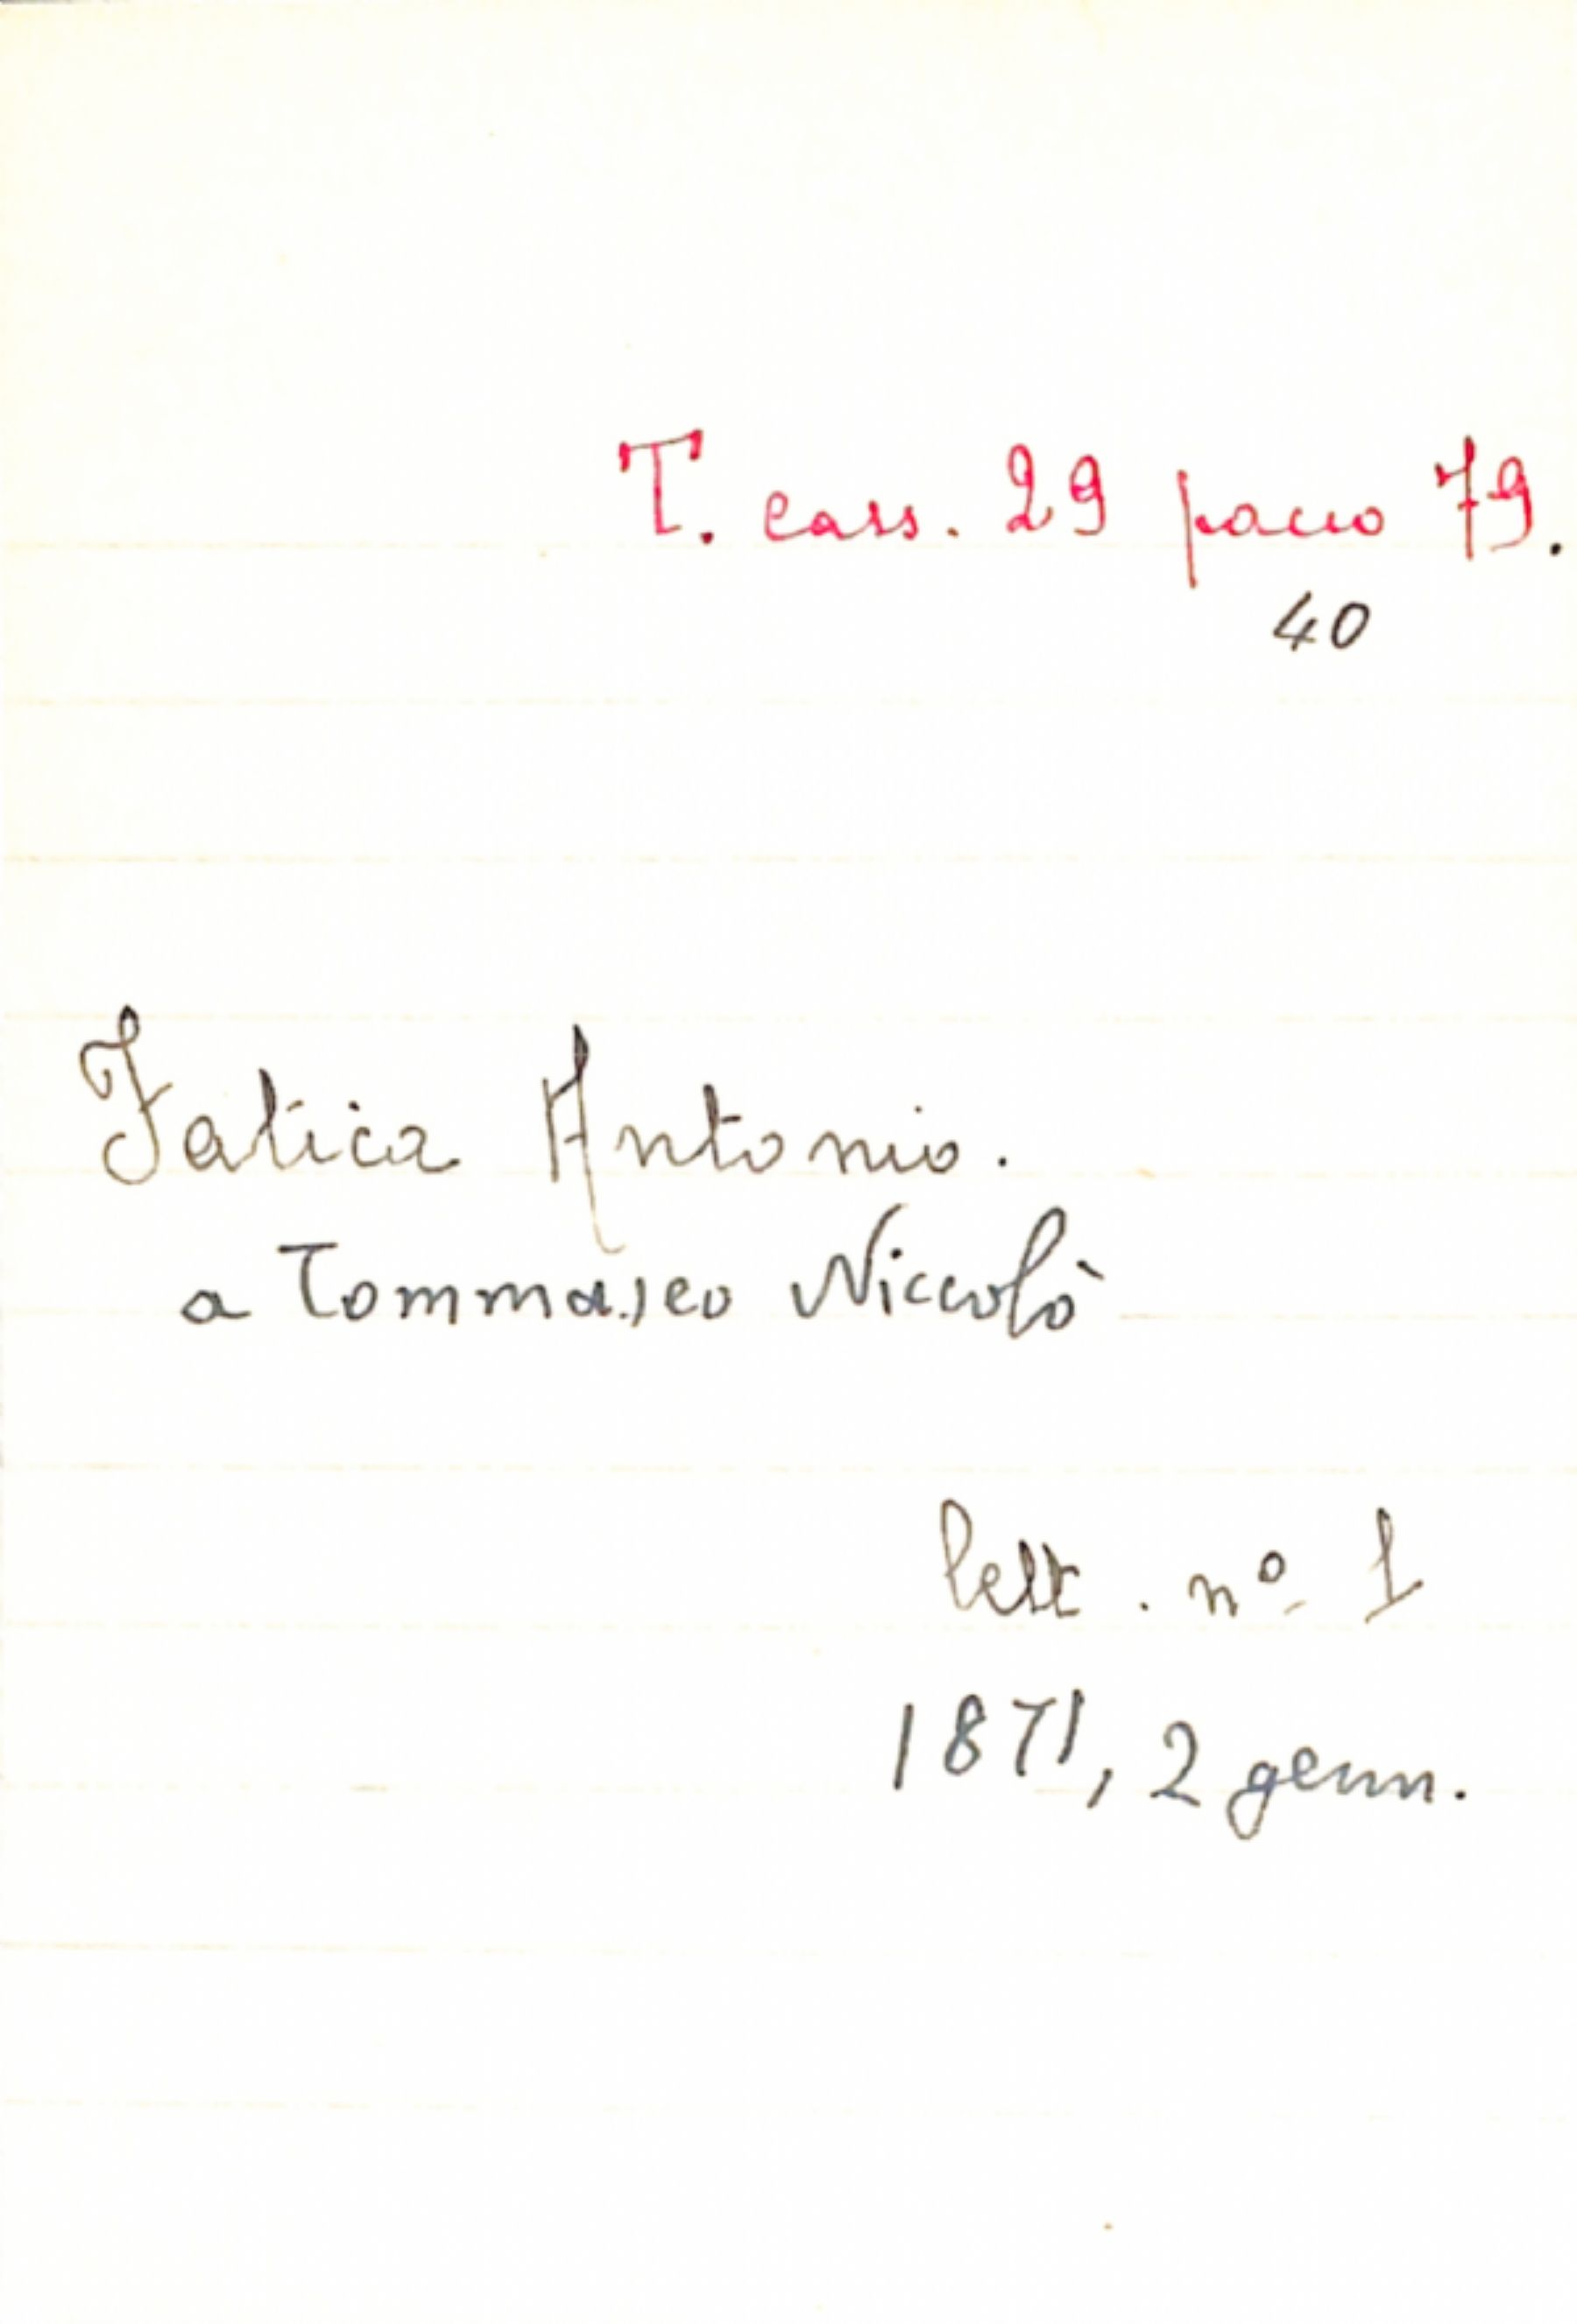 T. cass. 29 pacco 79.
40
Fatica Antonio.
a Tommaseo Niccolò
lett. nº 1
1871, 2 genn.